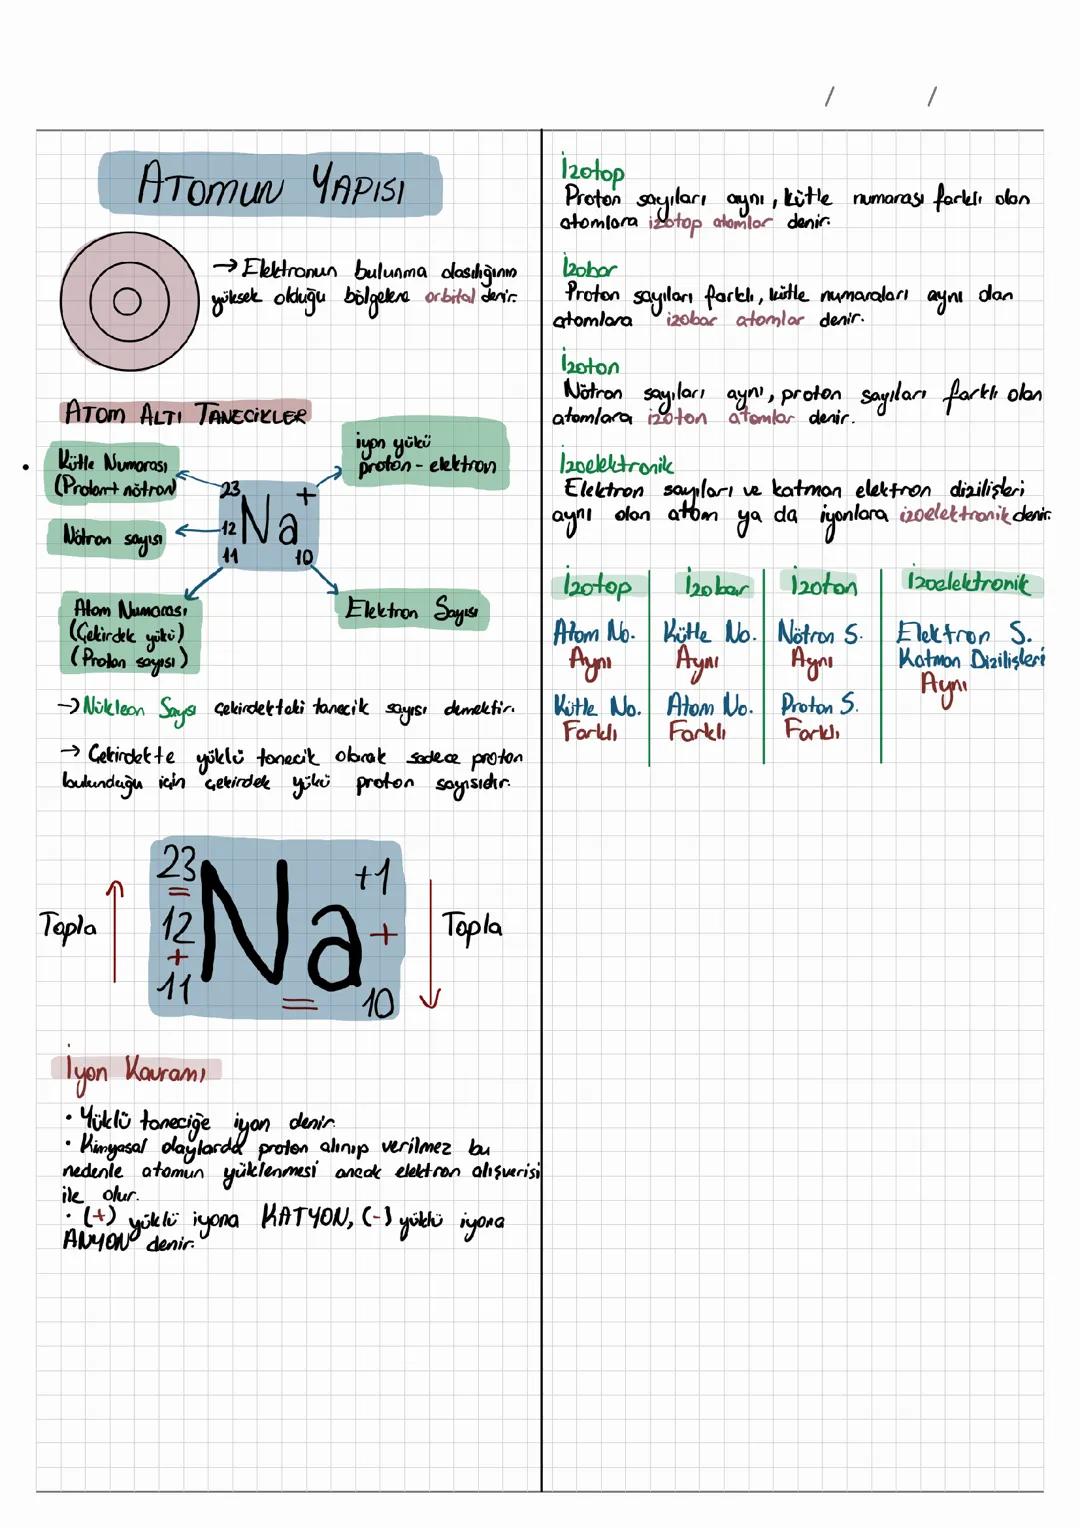 / /
ATOMUN YAPISI
→ Elektronun bulunma olasılığının
yüksek olduğu bölgelere orbital denir.
ATOM ALTI TANECİKLER
Kütle Numarası
(Proton+nötron)
iyon yükü
proton - elektron
Nötron sayısı
23
+
12
Na
11
10
Atom Numarası
(Çekirdek yükü)
(Proton sayısı)
Elektron Sayısı
→ Nükleon Sayısı çekirdekteki tanecik sayısı demektir.
→ Çekirdekte yüklü tanecik olarak sadece proton
bulunduğu için çekirdek yükü proton sayısıdır.
Topla
23
=
12
+
11
Na
+1
+
=
10
Topla
İyon Kavramı
• Yüklü taneciğe iyon denir.
• Kimyasal olaylarda proton alınıp verilmez bu
nedenle atomun yüklenmesi ancak elektron alışverişi
ile olur.
• (+) yüklü iyona KATYON, (-) yüklü iyona
ANYON denir.
İzotop
Proton sayıları aynı, kütle numarası farklı olan
atomlara izotop atomlar denir.
İzobar
Proton sayıları farklı, kütle numaraları aynı olan
atomlara izobar atomlar denir.
İzoton
Nötron sayıları aynı, proton sayıları farklı olan
atomlara izoton atomlar denir.
İzoelektronik
Elektron sayıları ve katman elektron dizilişleri
aynı olan atom ya da iyonlara izoelektronik denir.
İzotop İzobar İzoton İzoelektronik
Atom No. Kütle No. Nötron S. Elektron S.
Aynı Aynı Aynı Katman Dizilişleri
Aynı
Kütle No. Atom No. Proton S.
Farklı Farklı Farklı